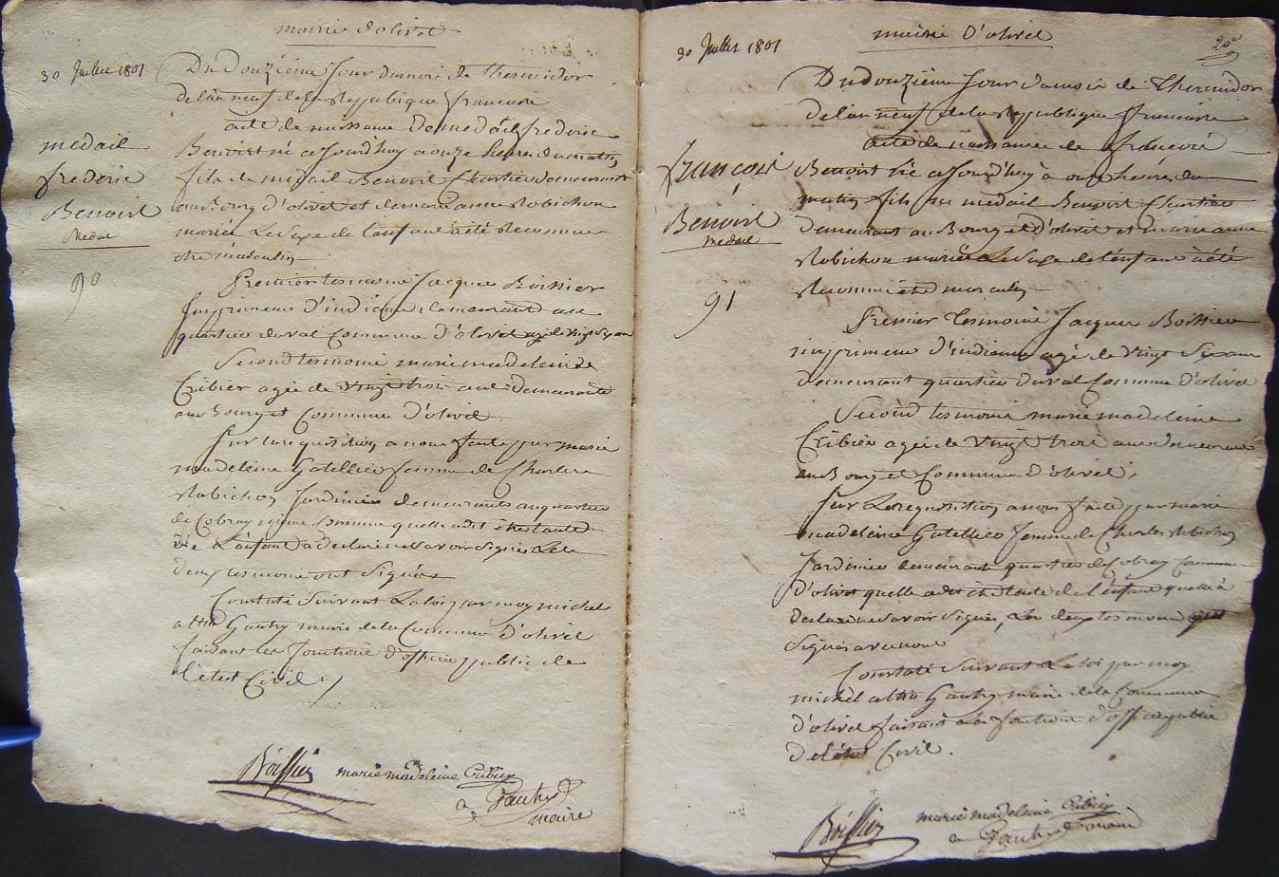 mairie d'olivet
30 Juillet 1801
Du Douzième Jour du mois de Thermidor
de l'an neuf de la République francaise
acte de naissance de medail frederic
medail
frederic
Benoist
Medail
90
Benoist né ce Jourd'huy a onze heures du matin
fils de medail Benoist Chartier demeurant
au Bourg d'olivet et de marie anne Robichon
mariés Le Sexe de l'enfant a été Reconnu
etre masculin
Premier tesmoins Jacques Boissier
Imprimeur d'indienne demeurant au
quartier du val Commune d'olivet agé de vingt six ans
Second tesmoins marie madeleine
Cribier agée de vingt trois ans demeurante
au Bourg et Commune d'olivet
Sur la requisition a nous faite par marie
madeleine Gatellier femme de Charles
Robichon Jardinier demeurants au quartier
de Cobray même Commune quelle a dit être tante
de L'enfant a declaré ne savoir signer Les
deux tesmoins ont signés
Constaté Suivant La loi par moy michel
Gautry maire de la Commune d'olivet
faisant les fonctions d'officier public de
l'etat Civil
Boissier marie madeleine Cribier
Gautry
maire
mairie D'olivet
30 Juillet 1801
Du douzième Jour du mois de Thermidor
de l'an neuf de la République francaise
acte de naissance de francois
françois
Benoist
Medail
91
Benoist né ce Jourd'huy à onze heures du
matin fils de medail Benoist Chartier
demeurant au Bourg d'olivet et marie anne
Robichon mariés Le Sexe de l'enfant a été
Reconnu être masculin
Premier Tesmoins Jacques Boissier
imprimeur d'indienne agé de vingt six ans
demeurant quartier du val Commune d'olivet
Second tesmoins marie madeleine
Cribier agée de vingt trois ans demeurante
au Bourg et Commune d'olivet
Sur La requisition a nous faite par marie
madeleine Gatellier femme de Charles Robichon
Jardinier demeurant quartier de Cobray Commune
d'olivet quelle a dit être tante de l'enfant quelle a
declaré ne savoir signer, Les deux tesmoins ont
signés avec nous
Constaté Suivant La loi par moy
michel Gautry maire de la Commune
d'olivet faisant les fonctions d'officier public
de l'état Civil.
Boissier marie madeleine Cribier
Gautry maire